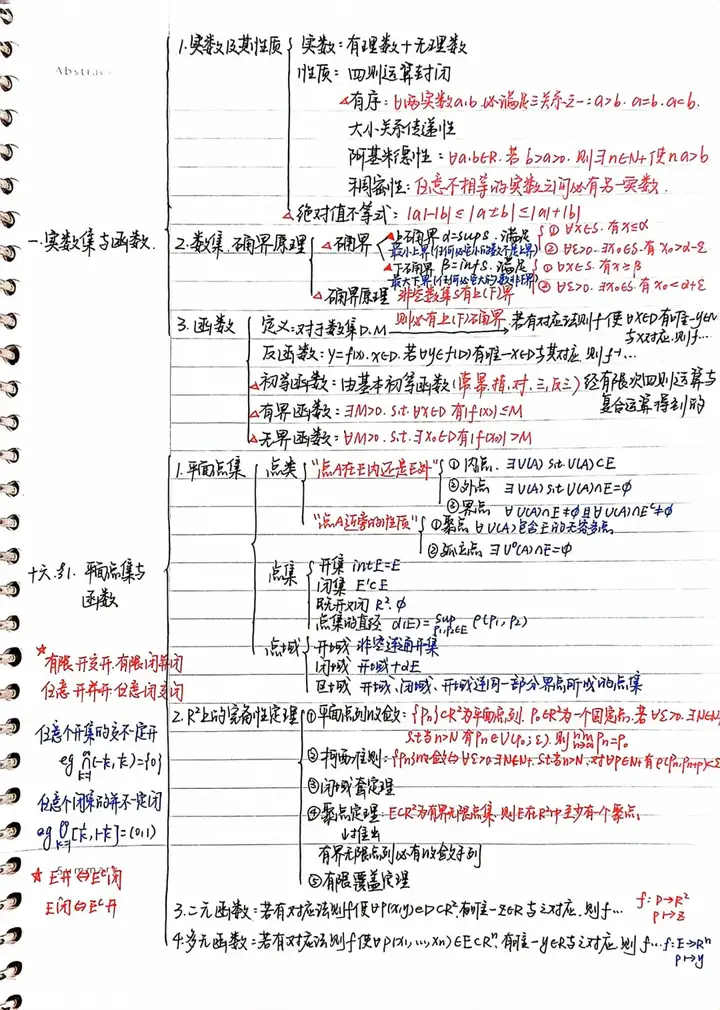 Abstract
一. 实数集与函数.
1. 实数及其性质
实数: 有理数+无理数
性质: 四则运算封闭
△有序: ∀两实数a.b.必满足三关系之一: a>b. a=b. a<b.
大小关系传递性
阿基米德性: ∀a.b∈R. 若b>a>0. 则∃n∈N+使na>b
稠密性: 任意不相等的实数之间必有另一实数.
△绝对值不等式: |a|-|b| ≤ |a±b| ≤ |a|+|b|
2. 数集.确界原理
△确界
△上确界 α=sup S. 满足
最小上界(任何比它小的数不是上界)
① ∀x∈S. 有x≤α
② ∀ε>0. ∃x₀∈S. 有x₀>α-ε
△下确界 β=inf S. 满足
最大下界(任何比它大的数非下界)
① ∀x∈S. 有x≥β
② ∀ε>0. ∃x₀∈S. 有x₀<α+ε
△确界原理 非空数集S有上(下)界
则必有上(下)确界
3. 函数
定义: 对于数集D.M 若有对应法则f使∀x∈D有唯一y∈M
与x对应. 则f…
反函数: y=f(x). x∈D. 若∀y∈f(D)有唯一x∈D与其对应. 则f⁻¹…
△初等函数: 由基本初等函数(常.幂.指.对.三.反三) 经有限次四则运算与
复合运算得到的
△有界函数: ∃M>0. s.t. ∀x∈D 有|f(x)|≤M
△无界函数: ∀M>0. s.t. ∃x₀∈D有|f(x₀)|>M
十六.§1. 平面点集与
函数
1. 平面点集
点类
"点A在E内还是E外"
① 内点. ∃U(A) s.t U(A)⊂E
② 外点 ∃U(A) s.t U(A)∩E=∅
③ 界点 ∀U(A)∩E≠∅且∀U(A)∩Eᶜ≠∅
"点A近旁的性质"
① 聚点 ∀U(A)包含E的无穷多点
② 孤立点 ∃U°(A)∩E=∅
点集
开集 intE=E
闭集 E'⊂E
既开又闭 R². ∅
点集的直径 d(E)= sup ρ(p₁, p₂)
p₁,p₂∈E
点域
开域 非空连通开集
闭域 开域+∂E
区域 开域、闭域、开域连同一部分界点所成的点集
★
有限.开交开.有限.闭并闭
任意.开并开.任意闭交闭
任意个开集的交不一定开
eg ∩(-1/k, 1/k)={0}
任意个闭集的并不一定闭
eg ∪[1/k, 1-1/k]=(0,1)
★ E开⇔Eᶜ闭
E闭⇔Eᶜ开
2. R²上的完备性定理
① 平面点列收敛: {Pn}⊂R²为平面点列. P₀∈R²为一个固定点. 若∀ε>0. ∃N∈N+
s.t当n>N 有Pn∈U(P₀;ε). 则lim Pn=P₀
② 柯西准则: {Pn}收敛⇔∀ε>0∃N∈N+. s.t当n>N. 对∀p∈N+有ρ(Pn,Pn+p)<ε
③ 闭域套定理
④ 聚点定理: E⊂R²为有界无限点集. 则E在R²中至少有一个聚点.
↓推出
有界无限点列必有收敛子列
⑤ 有限覆盖定理
3. 二元函数: 若有对应法则f使∀P(x,y)∈D⊂R².有唯一z∈R与之对应. 则f…
f: D→R²
P↦z
4. 多元函数: 若有对应法则f使∀P(x₁,…,xn)∈E⊂Rⁿ. 有唯一y∈R与之对应. 则f…
f: E→Rⁿ
P↦y